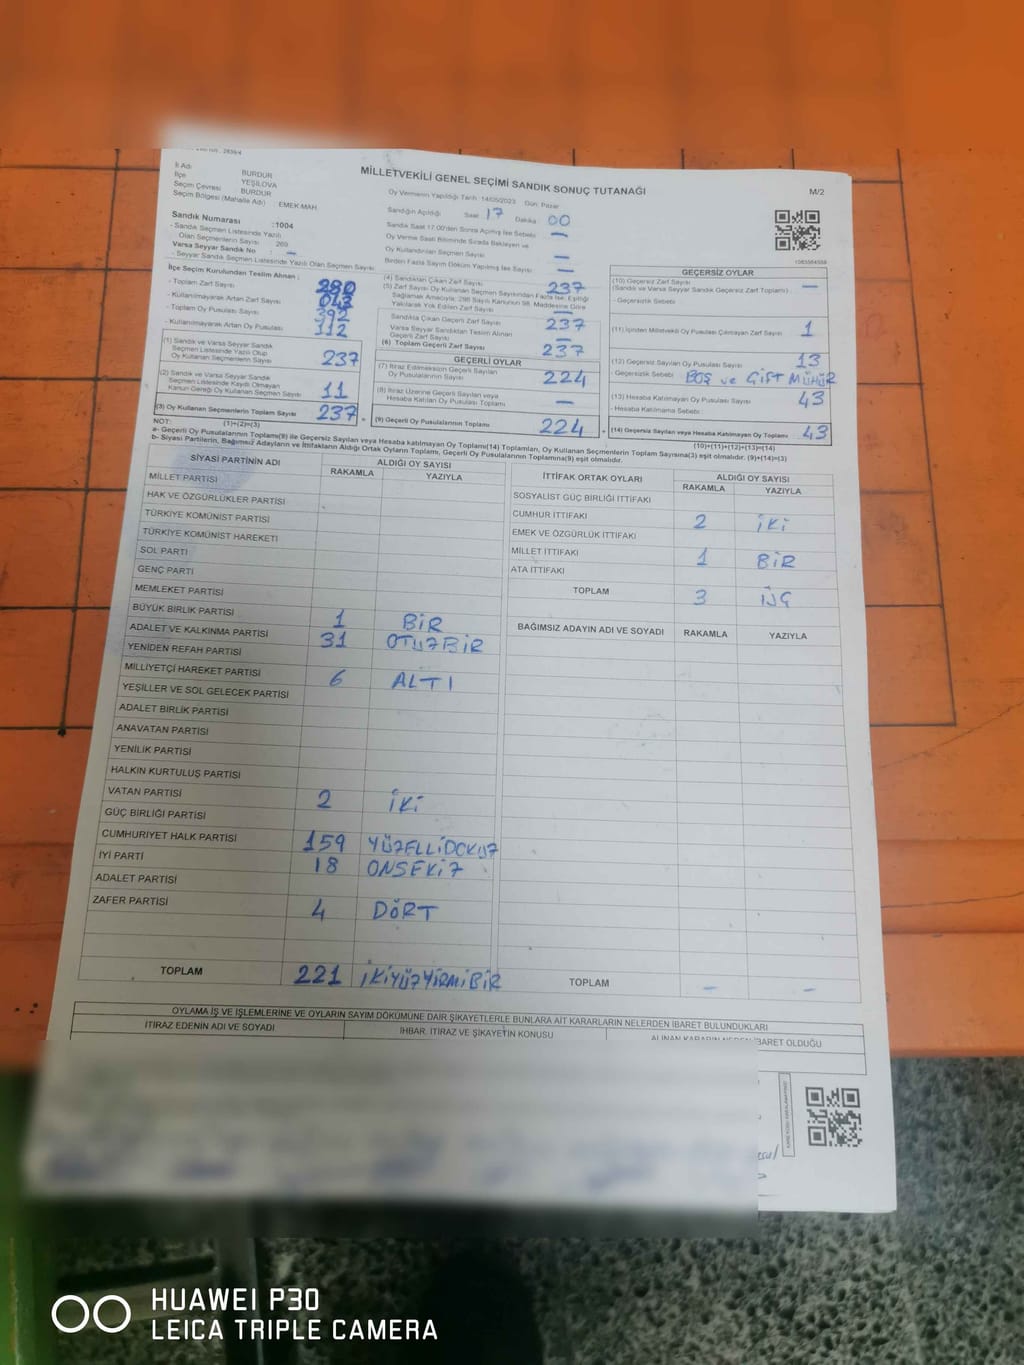 İl Adı : BURDUR
İlçe : YEŞİLOVA
Seçim Çevresi : BURDUR
Seçim Bölgesi (Mahalle Adı) : EMEK MAH.
MİLLETVEKİLİ GENEL SEÇİMİ SANDIK SONUÇ TUTANAĞI
M/2
Oy Vermenin Yapıldığı Tarih :14/05/2023 Gün: Pazar
Sandığın Açıldığı Saat 17 Dakika 00
Sandık Saat 17.00'den Sonra Açılmış İse Sebebi —
Oy Verme Saati Bitiminde Sırada Bekleyen ve
Oy Kullandırılan Seçmen Sayısı —
Birden Fazla Sayım Döküm Yapılmış İse Sayısı —
Sandık Numarası :1004
- Sandık Seçmen Listesinde Yazılı
Olan Seçmenlerin Sayısı : 269
Varsa Seyyar Sandık No : —
- Seyyar Sandık Seçmen Listesinde Yazılı Olan Seçmen Sayısı
İlçe Seçim Kurulundan Teslim Alınan :
- Toplam Zarf Sayısı 280
- Kullanılmayarak Artan Zarf Sayısı 043
- Toplam Oy Pusulası Sayısı 392
- Kullanılmayarak Artan Oy Pusulası 112
(1) Sandık ve Varsa Seyyar Sandık
Seçmen Listesinde Yazılı Olup
Oy Kullanan Seçmenlerin Sayısı 237
(2) Sandık ve Varsa Seyyar Sandık
Seçmen Listesinde Kayıtlı Olmayan
Kanun Gereği Oy Kullanan Seçmen Sayısı 11
(3) Oy Kullanan Seçmenlerin Toplam Sayısı 237
(1)+(2)=(3)
(4) Sandıktan Çıkan Zarf Sayısı 237
(5) Zarf Sayısı Oy Kullanan Seçmen Sayısından Fazla İse, Eşitliği
Sağlamak Amacıyla; 298 Sayılı Kanunun 98. Maddesine Göre
Yakılarak Yok Edilen Zarf Sayısı —
Sandıkta Çıkan Geçerli Zarf Sayısı 237
Varsa Seyyar Sandıktan Teslim Alınan
Geçerli Zarf Sayısı —
(6) Toplam Geçerli Zarf Sayısı 237
GEÇERLİ OYLAR
(7) İtiraz Edilmeksizin Geçerli Sayılan
Oy Pusulalarının Sayısı 224
(8) İtiraz Üzerine Geçerli Sayılan veya
Hesaba Katılan Oy Pusulası Toplamı —
(9) Geçerli Oy Pusulalarının Toplamı 224
GEÇERSİZ OYLAR
(10) Geçersiz Zarf Sayısı
(Sandık ve Varsa Seyyar Sandık Geçersiz Zarf Toplamı) —
- Geçersizlik Sebebi
(11) İçinden Milletvekili Oy Pusulası Çıkmayan Zarf Sayısı 1
(12) Geçersiz Sayılan Oy Pusulası Sayısı 13
- Geçersizlik Sebebi BOŞ ve ÇİFT MÜHÜR
(13) Hesaba Katılmayan Oy Pusulası Sayısı 43
- Hesaba Katılmama Sebebi :
(14) Geçersiz Sayılan veya Hesaba Katılmayan Oy Toplamı 43
(10)+(11)+(12)+(13)=(14)
NOT:
a- Geçerli Oy Pusulalarının Toplamı(9) ile Geçersiz Sayılan veya Hesaba katılmayan Oy Toplamı(14) Toplamları, Oy Kullanan Seçmenlerin Toplam Sayısına(3) eşit olmalıdır. (9)+(14)=(3)
b- Siyasi Partilerin, Bağımsız Adayların ve İttifakların Aldığı Ortak Oyların Toplamı, Geçerli Oy Pusulalarının Toplamına(9) eşit olmalıdır.
SİYASİ PARTİNİN ADI ALDIĞI OY SAYISI
RAKAMLA YAZIYLA
MİLLET PARTİSİ
HAK VE ÖZGÜRLÜKLER PARTİSİ
TÜRKİYE KOMÜNİST PARTİSİ
TÜRKİYE KOMÜNİST HAREKETİ
SOL PARTİ
GENÇ PARTİ
MEMLEKET PARTİSİ
BÜYÜK BİRLİK PARTİSİ 1 BİR
ADALET VE KALKINMA PARTİSİ 31 OTUZBİR
YENİDEN REFAH PARTİSİ
MİLLİYETÇİ HAREKET PARTİSİ 6 ALTI
YEŞİLLER VE SOL GELECEK PARTİSİ
ADALET BİRLİK PARTİSİ
ANAVATAN PARTİSİ
YENİLİK PARTİSİ
HALKIN KURTULUŞ PARTİSİ
VATAN PARTİSİ 2 İKİ
GÜÇ BİRLİĞİ PARTİSİ
CUMHURİYET HALK PARTİSİ 159 YÜZELLİDOKUZ
İYİ PARTİ 18 ONSEKİZ
ADALET PARTİSİ
ZAFER PARTİSİ 4 DÖRT
TOPLAM 221 İKİYÜZYİRMİBİR
İTTİFAK ORTAK OYLARI ALDIĞI OY SAYISI
RAKAMLA YAZIYLA
SOSYALİST GÜÇ BİRLİĞİ İTTİFAKI
CUMHUR İTTİFAKI 2 İKİ
EMEK VE ÖZGÜRLÜK İTTİFAKI
MİLLET İTTİFAKI 1 BİR
ATA İTTİFAKI
TOPLAM 3 ÜÇ
BAĞIMSIZ ADAYIN ADI VE SOYADI RAKAMLA YAZIYLA
TOPLAM — —
OYLAMA İŞ VE İŞLEMLERİNE VE OYLARIN SAYIM DÖKÜMÜNE DAİR ŞİKAYETLERLE BUNLARA AİT KARARLARIN NELERDEN İBARET BULUNDUKLARI
İTİRAZ EDENİN ADI VE SOYADI İHBAR, İTİRAZ VE ŞİKAYETİN KONUSU ALINAN KARARIN NEDEN İBARET OLDUĞU
HUAWEI P30
LEICA TRIPLE CAMERA